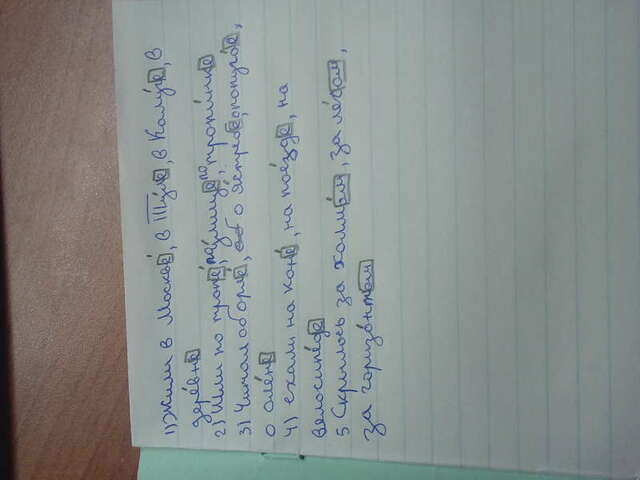 1) Жили в Москве́, в Ту́ле, в Калу́ге, в
дере́вне
2) Шли по тропе́, по у́лице, по тропи́нке
3) Читал об орле́, о я́стребе, попуга́е,
о оле́не
4) ехали на коне́, на по́езде, на
велосипе́де
5 Скрылось за холмо́м, за ле́сом,
за горизо́нтом